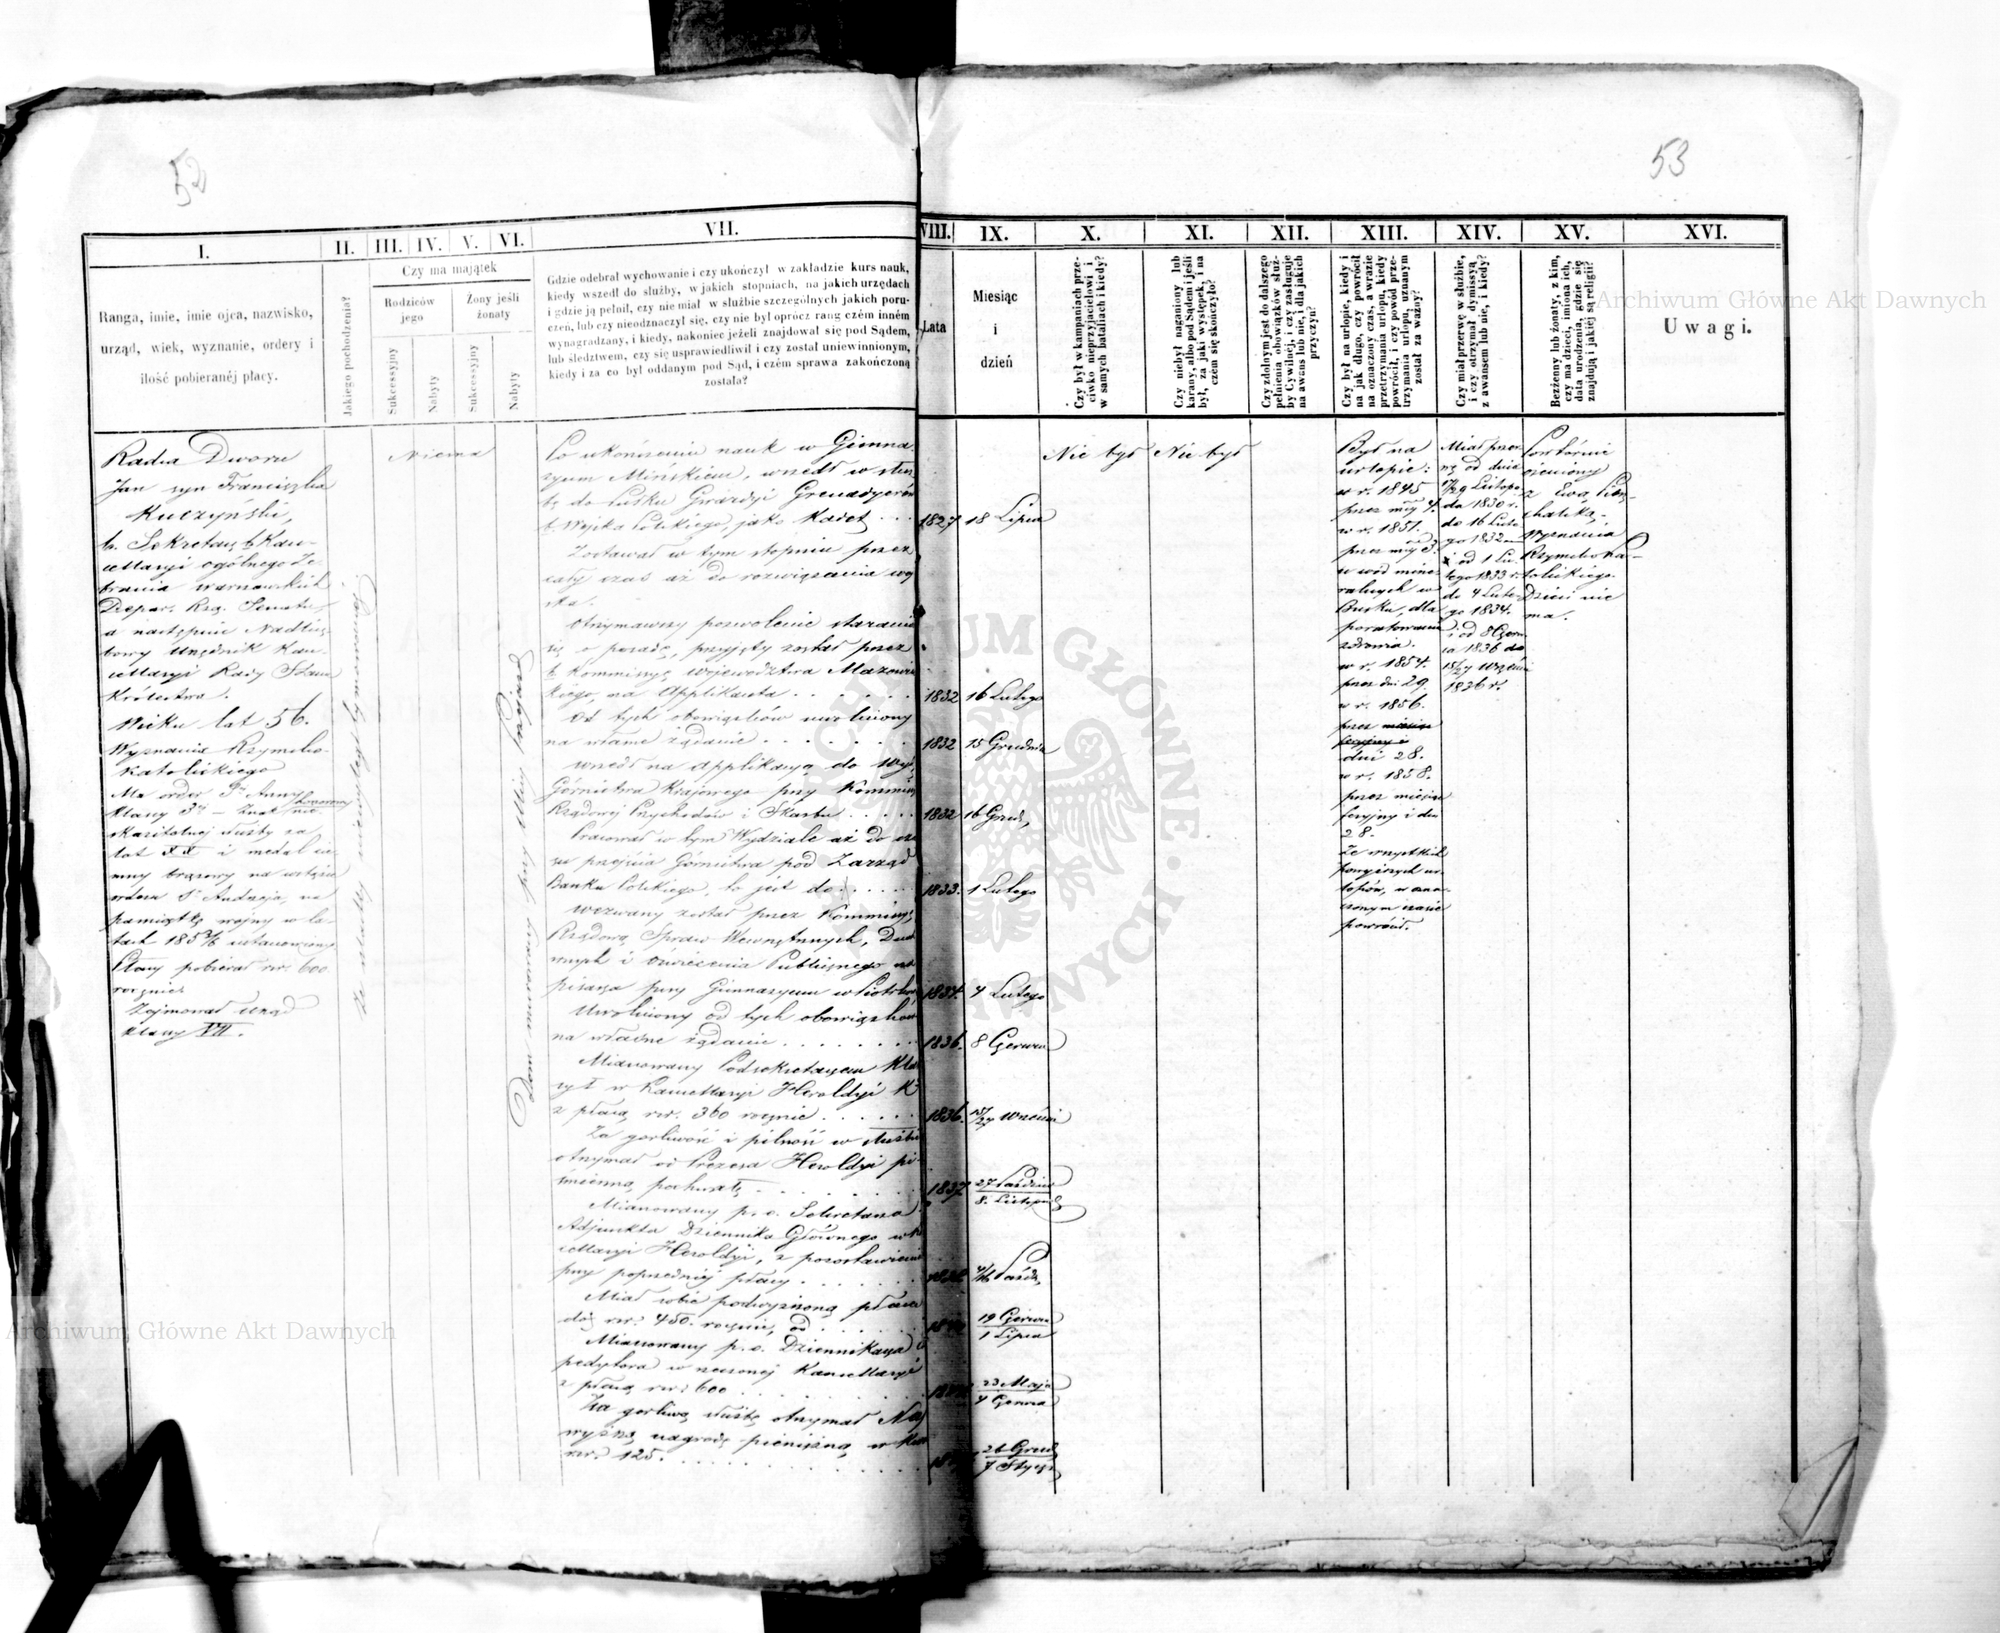 52
I.
II.
III.
IV.
V.
VI.
VII.
Ranga, imie, imie ojca, nazwisko,
urząd, wiek, wyznanie, ordery i
ilość pobieranéj płacy.
Jakiego pochodzenia?
Czy ma majątek
Rodziców
jego
Żony jeśli
żonaty
Sukcessyjny
Nabyty
Sukcessyjny
Nabyty
Gdzie odebrał wychowanie i czy ukończył w zakładzie kurs nauk,
kiedy wszedł do służby, w jakich stopniach, na jakich urzędach
i gdzie ją pełnił, czy nie miał w służbie szczególnych jakich poru-
czeń, lub czy nieodznaczył się, czy nie był oprócz rang czém inném
wynagradzany, i kiedy, nakoniec jeżeli znajdował się pod Sądem,
lub śledztwem, czy się usprawiedliwił i czy został uniewinnionym,
kiedy i za co był oddanym pod Sąd, i czém sprawa zakończoną
została?
Radca Dworu
Jan syn Franciszka
Kuczyński,
b. Sekretarz b. Kan-
cellaryi ogólnego Ze-
brania warszawskich
Depar. Rzą. Senatu,
a następnie Nadlicz-
bowy Urzędnik Kan-
cellaryi Rady Stanu
Królestwa.
Wieku lat 56.
Wyznania Rzymsko-
Katolickiego
Ma order Sw Anny
Klassy 3ej – Znak honorowy nie-
skazitelnej służby za
lat XX i medal cie-
mny brązowy na wstążce
orderu S. Andrzeja, na
pamiątkę wojny w la-
tach 1853/6 ustanowiony
Płacy pobierał rsr. 600
rocznie
Zajmował urząd
klassy VII.
Ze szlachty niewylegitymowanej.
Niema
Dom murowany przy ulicy
Po ukończeniu nauk w Gimna-
zyum Mińskiem, wszedł w służ-
bę do Pułku Gwardyi Grenadyerów
b. Wojska Polskiego, jako Kadet . . .
Zostawał w tym stopniu przez
cały czas aż do rozwiązania woj-
ska.
Otrzymawszy pozwolenie starania
się o posadę, przyjęty został przez
b. Kommissyę Województwa Mazowiec-
kiego, na Applikanta . . . . . .
Od tych obowiązków uwolniony
na własne żądanie . . . . . . .
wszedł na applikacyą do Wydz.
Górnictwa Krajowego przy Kommis.
Rządowej Przychodów i Skarbu . . . .
Pracował w tym Wydziale aż do cza-
su przejścia Górnictwa pod Zarząd
Banku Polskiego, to jest do . . . . .
wezwany został przez Kommissyę
Rządową Spraw Wewnętrznych, Duch-
wnych i Oświecenia Publicznego na
pisarza przy Gimnazyum w Piotrkowie
Uwolniony od tych obowiązków
na własne żądanie . . . . . . .
Mianowany Podsekretarzem Kla-
sy I w Kancellaryi Heroldyi K.
z płacą rsr. 360 rocznie . . . . . .
Za gorliwość i pilność w służbie
otrzymał od Prezesa Heroldyi pi-
śmienną pochwałę . . . . . . . .
Mianowany p. o. Sekretarza
Adjunkta Dziennika Głównego w Kan-
cellaryi Heroldyi, z pozostawieniem
przy poprzedniej płacy . . . . . .
Miał sobie podwyższoną płacę
do rsr. 450. rocznie, od . . . . . .
Mianowany p. o. Dziennikarza Ex-
pedytora w rzeczonej Kancellaryi
z płacą rsr. 600 . . . . . . . . .
Za gorliwą służbę otrzymał Naj-
wyższą nagrodę pieniężną w kwocie
rsr. 125. . . . . . . . . . . .
53
VIII.
IX.
X.
XI.
XII.
XIII.
XIV.
XV.
XVI.
Lata
Miesiąc
i
dzień
Czy był w kampaniach prze-
ciwko nieprzyjacielowi i
w samych bataliach i kiedy?
Czy niebył naganiony lub
karany, albo pod Sądem i jeśli
był, za jaki występek, i na
czém się skończyło?
Czy zdolnym jest do dalszego
pełnienia obowiązków służ-
by Cywilnéj, i czy zasługuje
na awans lub nie, i dla jakich
przyczyn?
Czy był na urlopie, kiedy i
na jak długo, czy powrócił
na oznaczony czas, a wrazie
przetrzymania urlopu, kiedy
powrócił, i czy powód prze-
trzymania urlopu, uznanym
został za ważny?
Czy miał przerwę w służbie,
i czy otrzymał dymissyą
z awansem lub nie, i kiedy?
Bezżenny lub żonaty, z kim,
czy ma dzieci, imiona ich,
data urodzenia, gdzie się
znajdują i jakiéj są religii?
Uwagi.
1827 18 Lipca
1832 16 Lutego
1832 15 Grudnia
1832 16 Grud.
1833. 1 Lutego
1834. 4 Lutego
1836. 8 Czerwca
1836. 15/27 Wrześni
1837 27 Paździer
8. Listopad
4/16 Paźdz.
19 Czerwca
1 Lipca
23 Maja
4 Czerwca
26 Grud.
7 Stycz.
Nie był
Nie był
Był na
urlopie:
w r. 1845
przez mcy 4.
w r. 1851.
przez mcy 3.
u wód mine-
ralnych w
Busku, dla
poratowania
zdrowia.
w r. 1854.
przez dni 29.
w r. 1856.
przez miesiąc
feryjny i
dni 28.
w r. 1858.
przez miesiąc
feryjny i dni
28.
Ze wszystkich
powyższych ur-
lopów, w ozna-
czonym czasie
powrócił.
Miał przer-
wę od dnia
17/29 Listopa-
da 1830 r.
do 16 Lute-
go 1832
i od 1 Lu-
tego 1833 r.
do 4 Lute-
go 1834.
i od 8 Czerw-
ca 1836 do
15/27 Wrześni
1836 r.
Powtórnie
ożeniony
z Ewą
Wyznania
Rzymsko Ka-
tolickiego.
Dzieci nie
ma.
Archiwum Główne Akt Dawnych
Archiwum Główne Akt Dawnych
ARCHIWUM GŁÓWNE AKT DAWNYCH